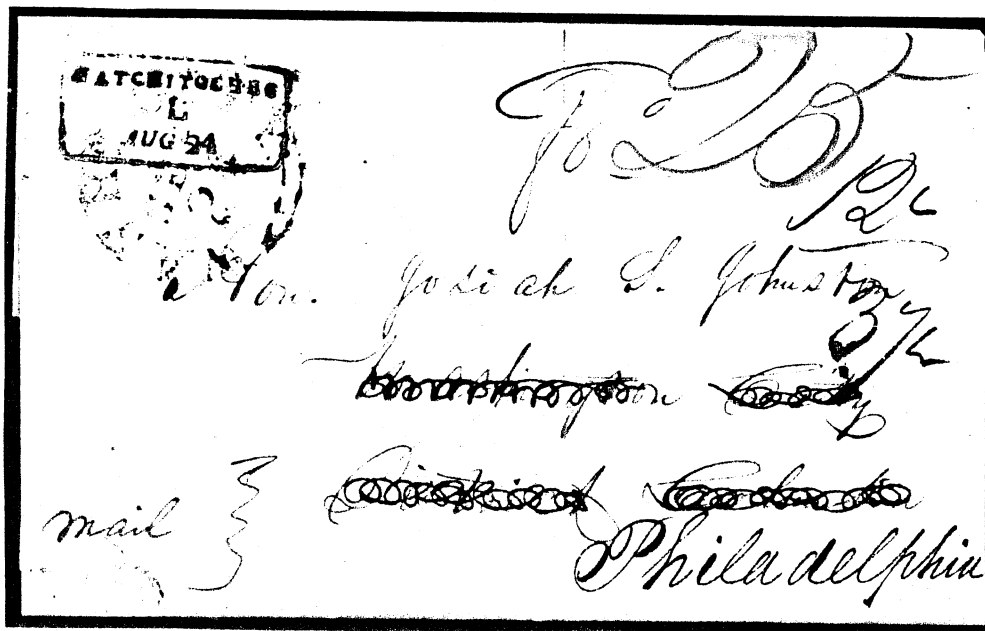 NATCHITOCHES
L
AUG 24
Fo. 25
12 ½
37 ½
Hon. Josiah S. Johnston
Washington City
District Columbia
mail
Philadelphia